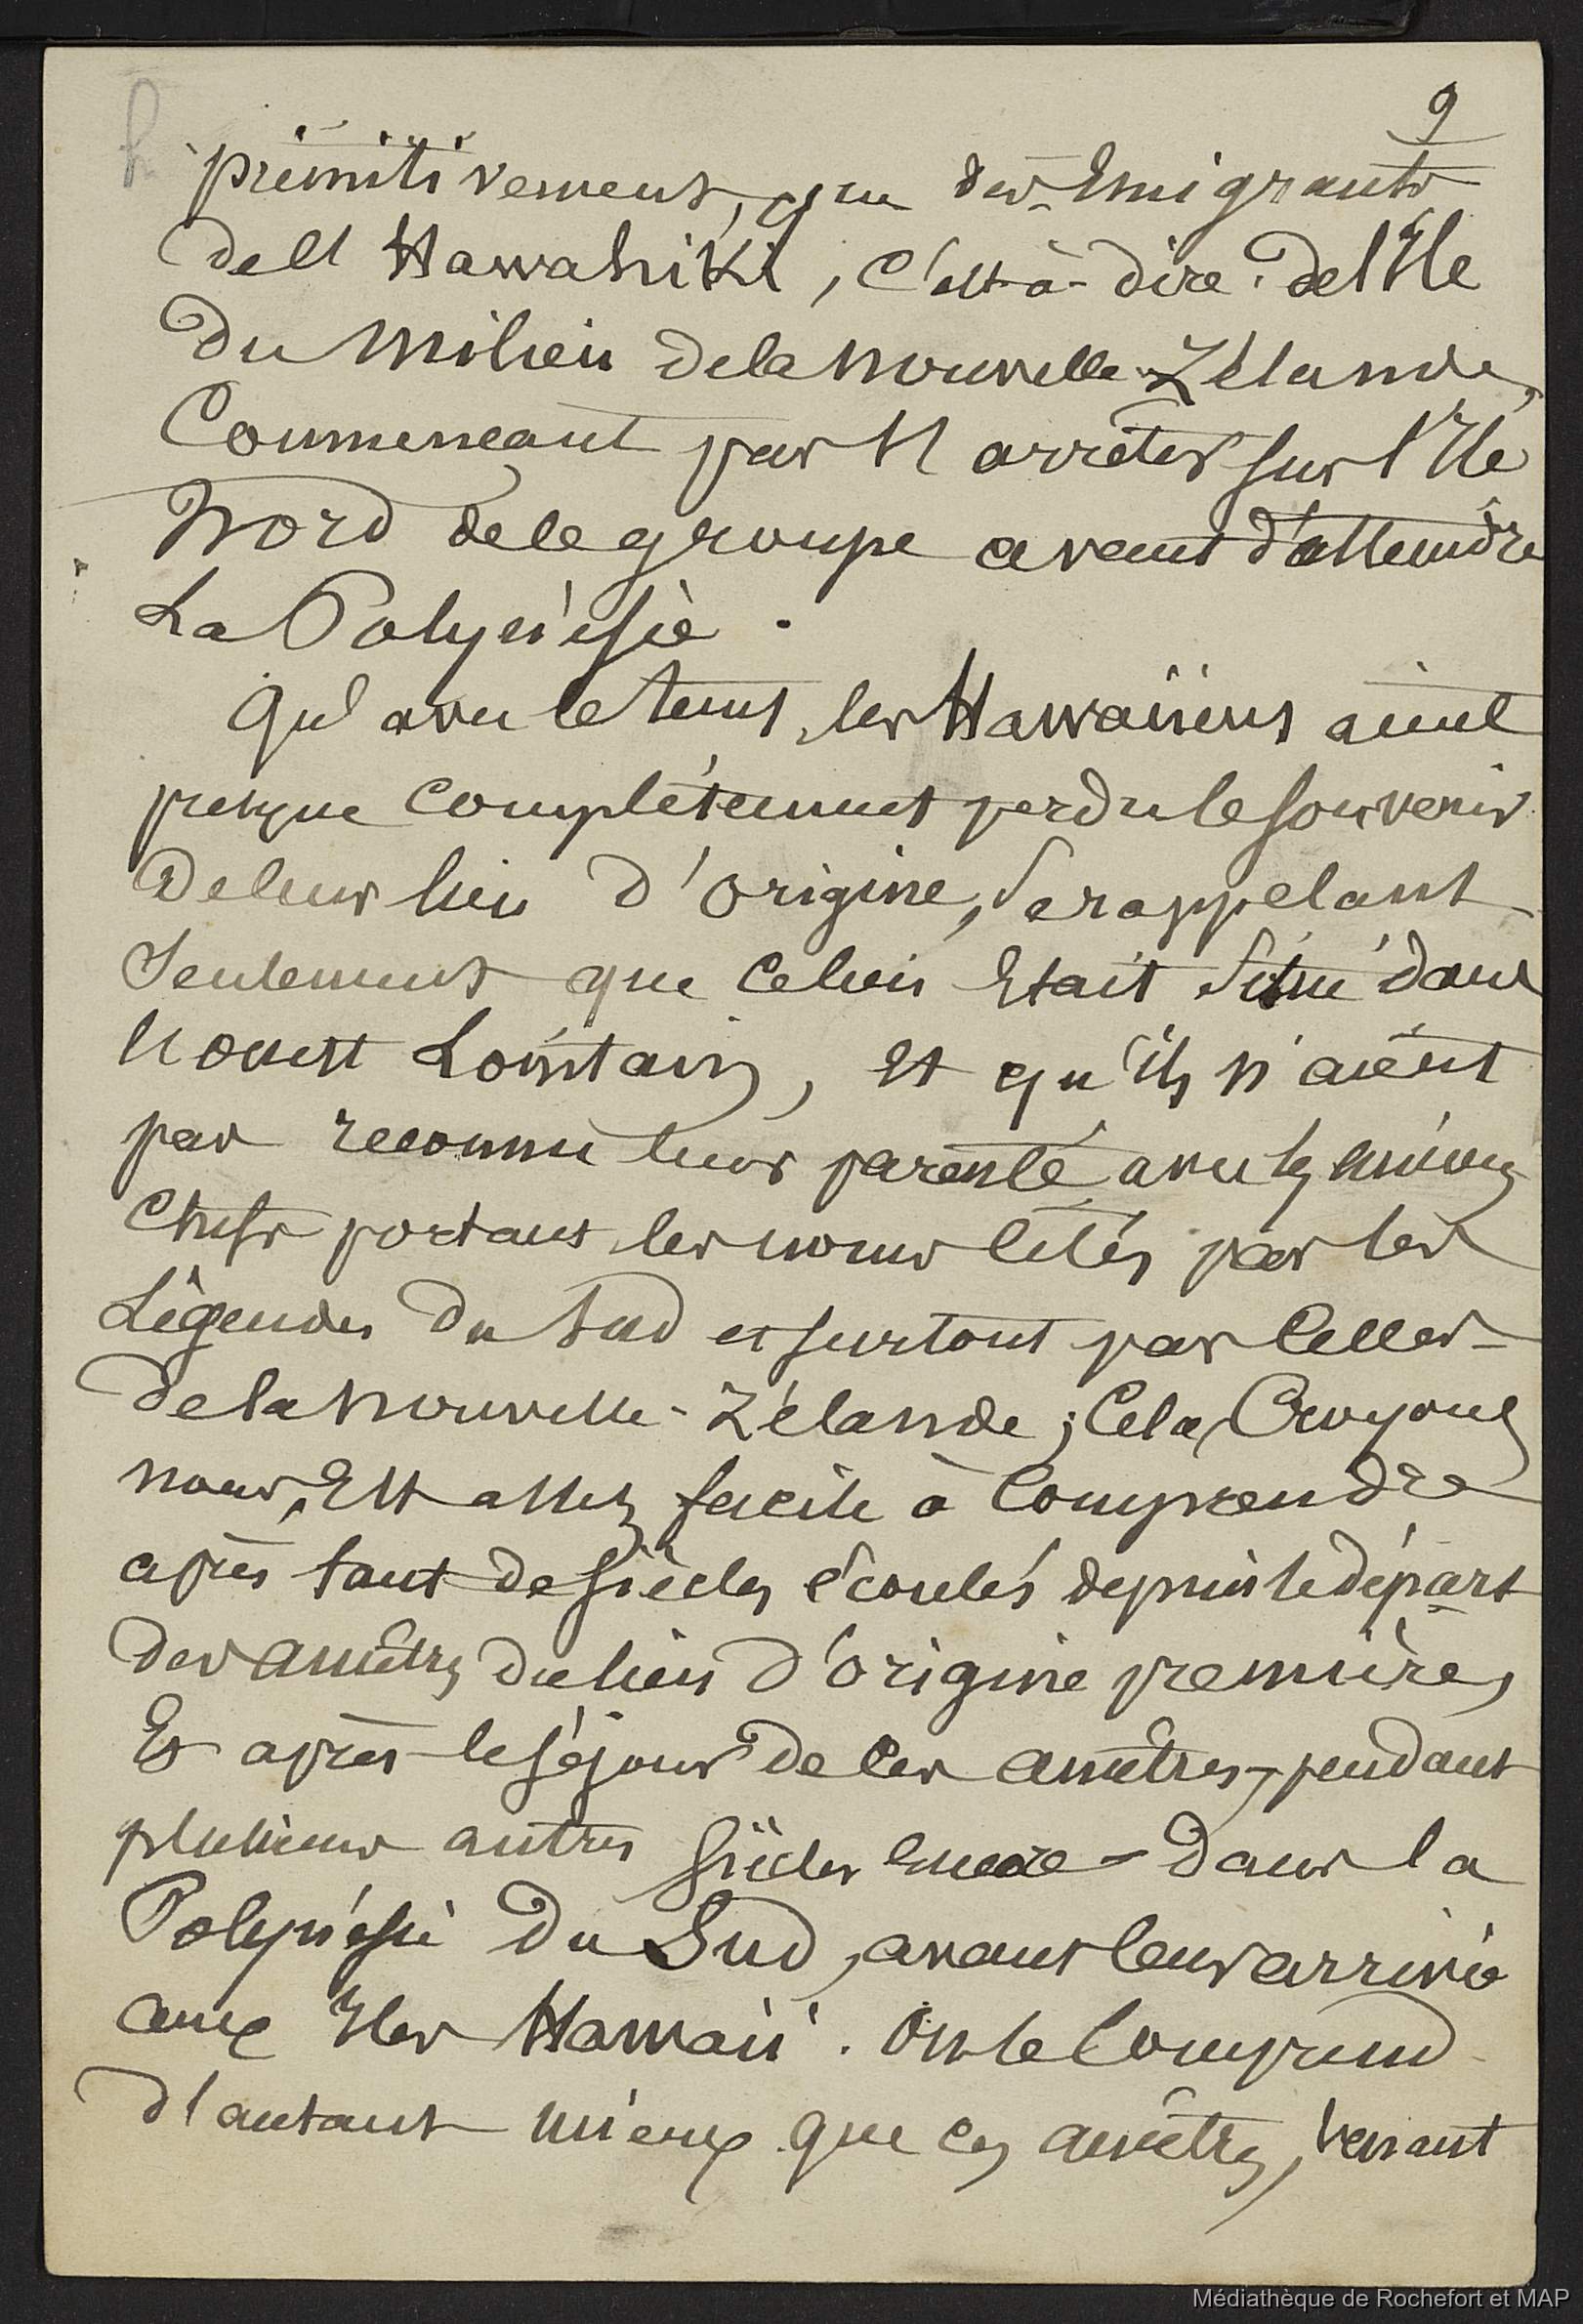 9
primitivement, que des Emigrants
de l'Hawahiki, c'est-à-dire de l'Ile
du Milieu de la Nouvelle-Zélande,
Commencant par s'arrêter sur l'Ile
Nord de le groupe avant d'atteindre
La Polynésie.
Qu'avec le tems, les Hawaiiens aient
presque complétement perdu le souvenir
de leur lieu d'origine, se rappelant
Seulement que celui ci Etait situé dans
l'ouest Lointain, et qu'ils n'aient
pas reconnu leur parenté avec les anciens
Chefs portant les noms cités par les
Légendes du Sud et surtout par celles
de la Nouvelle-Zélande; Cela, Croyons
nous, Est assez facile à Comprendre
après tant de siècles écoulés depuis le départ
des ancêtres du lieu d'origine première,
Et après le séjour de ces ancêtres, pendant
plusieurs autres siècles encore dans la
Polynésie du Sud, avant leur arrivée
aux Iles Hawaii. On le Comprend
d'autant mieux que ces ancêtres, venant
Médiathèque de Rochefort et MAP